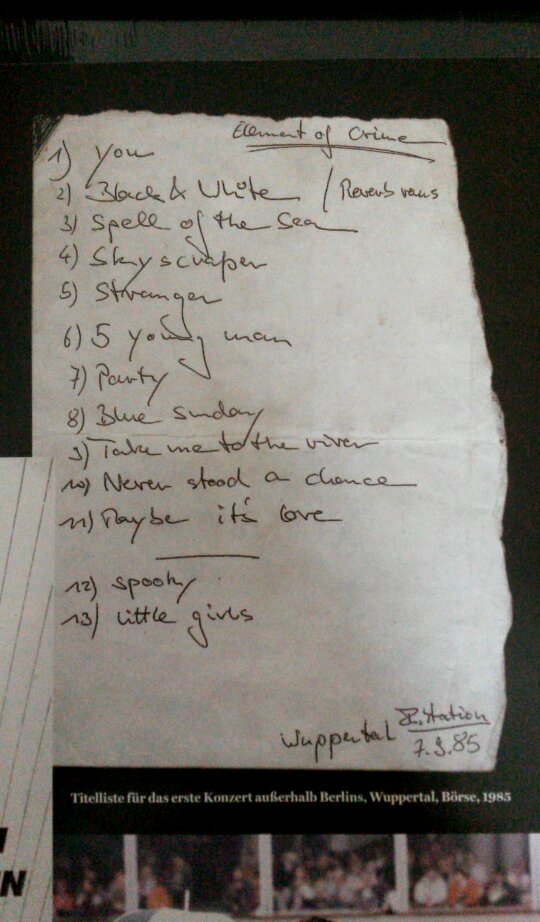 Element of Crime
1) You
2) Black & White / Reverb raus
3) Spell of the Sea
4) Skyscraper
5) Stranger
6) 5 young man
7) Party
8) Blue Sunday
9) Take me to the river
10) Never stood a chance
11) Maybe it's love
12) spooky
13) little girls
Wuppertal
7.9.85
Titelliste für das erste Konzert außerhalb Berlins, Wuppertal, Börse, 1985
N